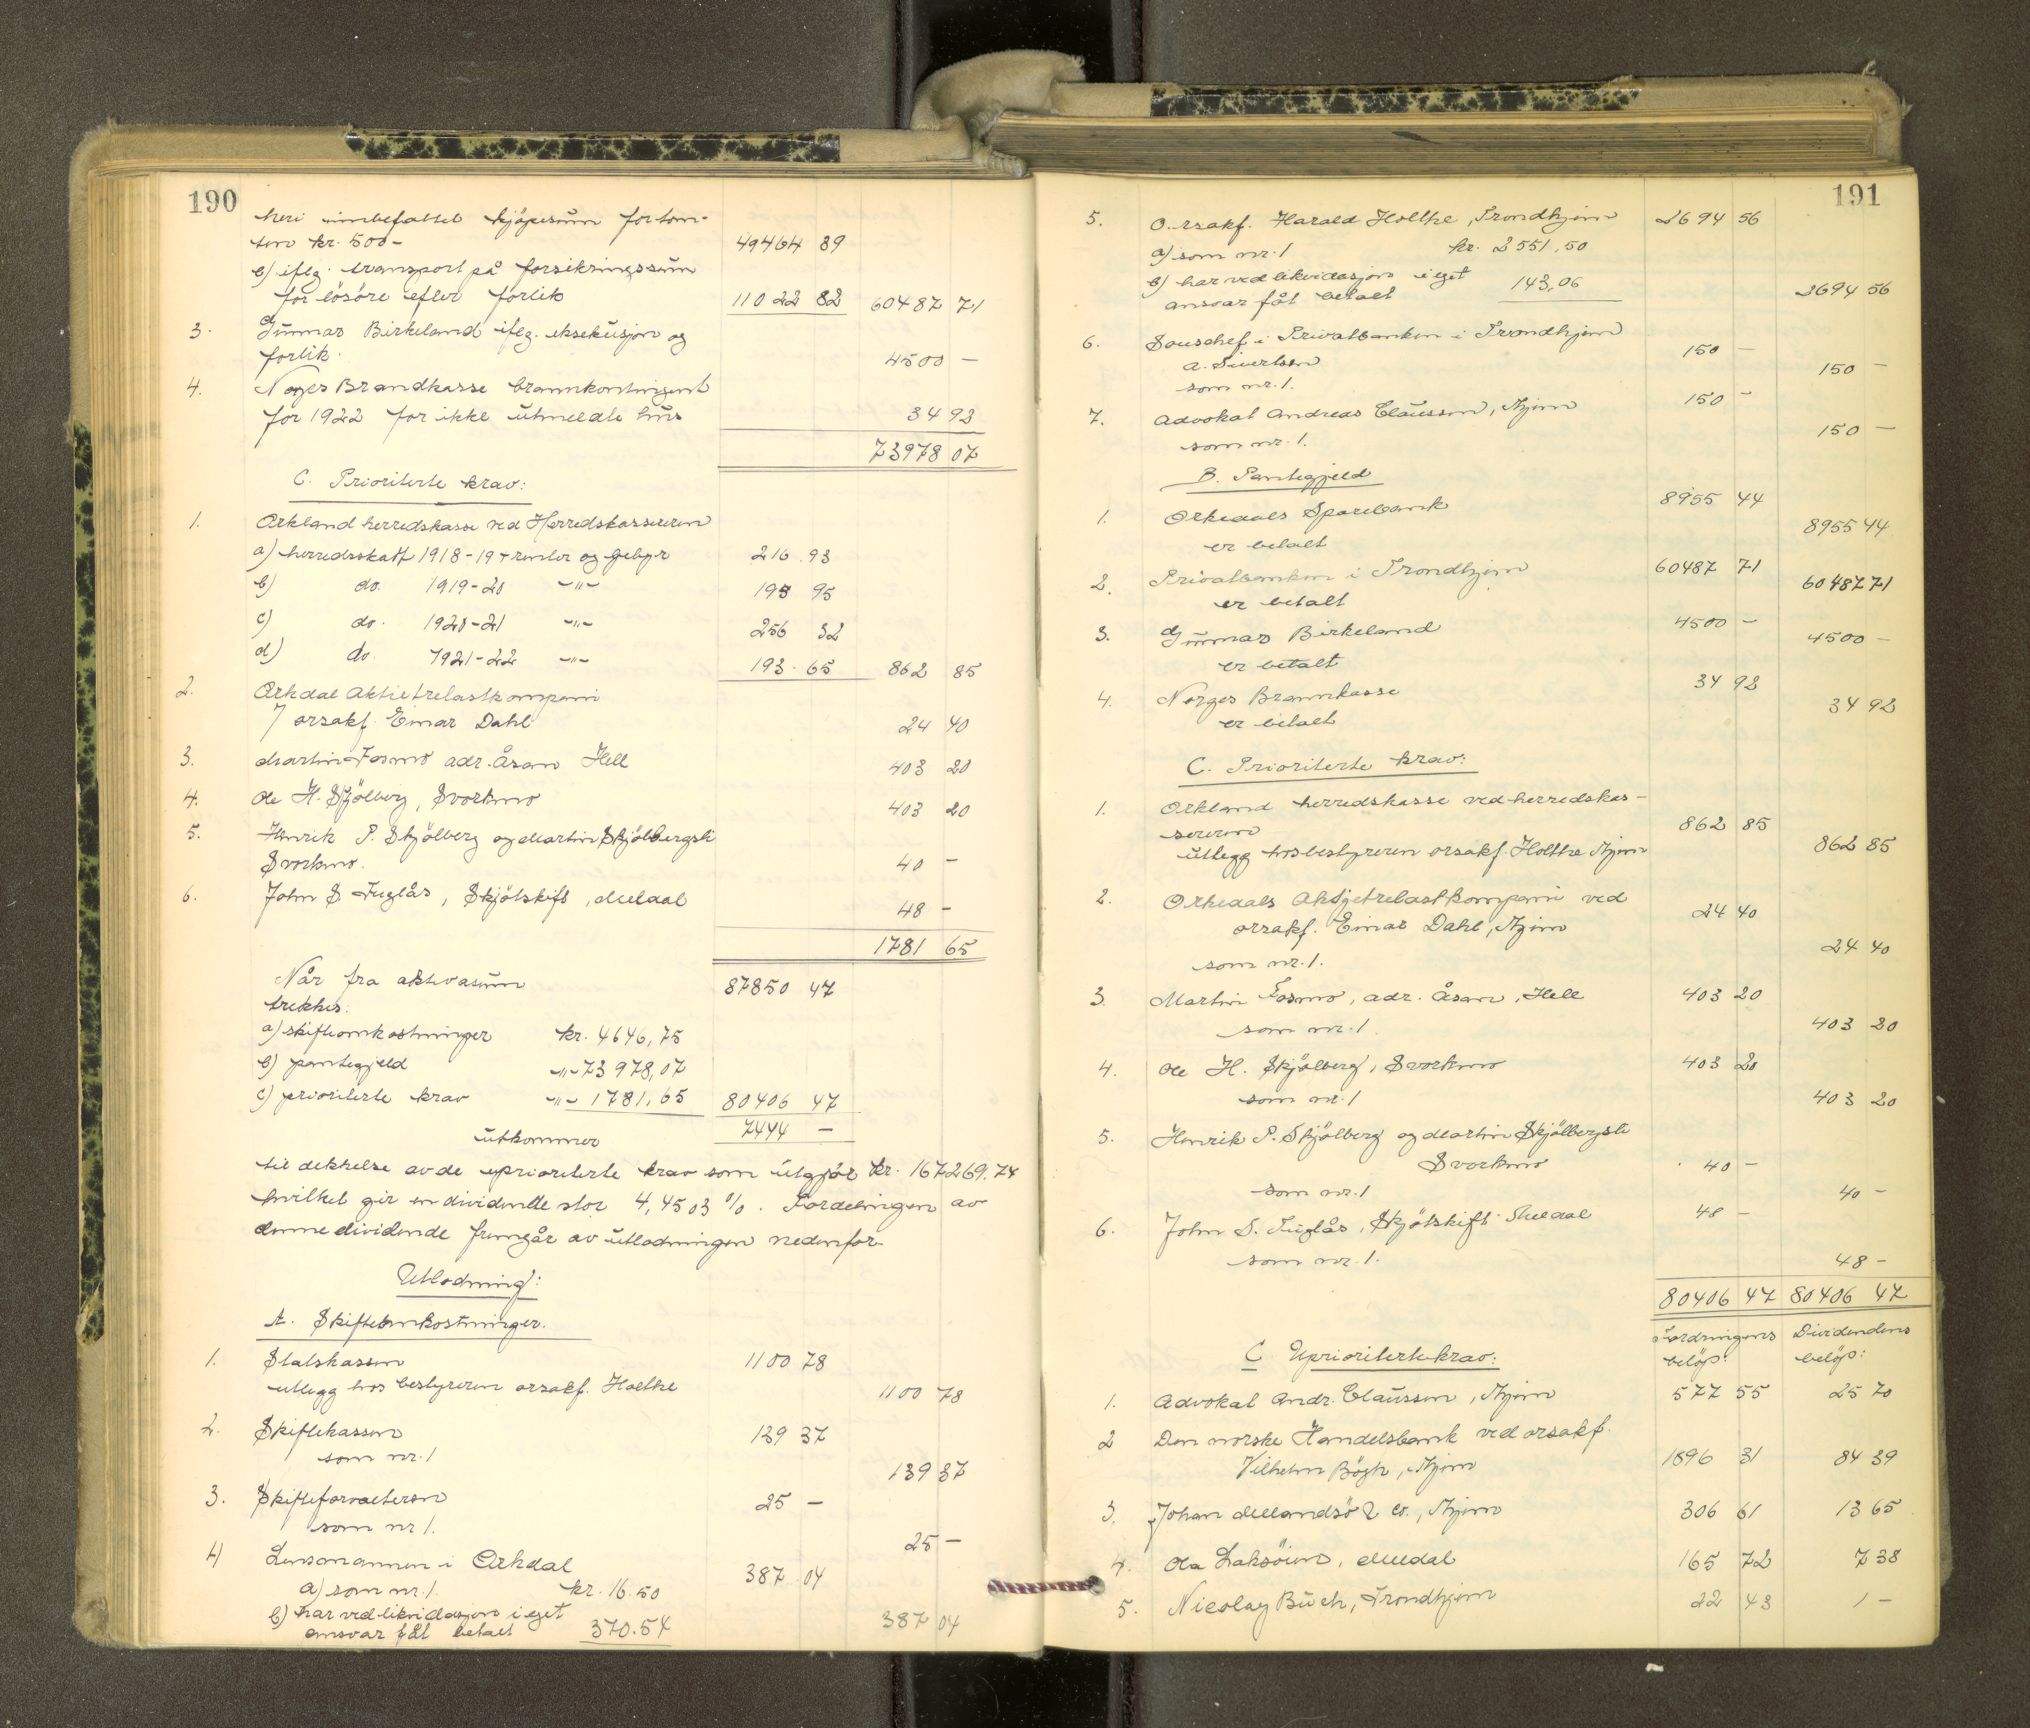 190
heri innbefattet kjöpesum for tom-
ten kr. 500- 49464 89
b) iflg. transport på forsikringssum
for lösöre efter forlik 11022 82 60487 71
3. Gunnar Birkeland iflg. eksekusjon og
forlik. 4500 -
4. Noges Brandkasse brannkontingent
for 1922 for ikke utmeldte hus 34 92
73978 07
C. Prioriterte krav:
1. Orkland herredskasse ved Herredskassereren
a) herredsskatt 1918-19 + renter og gebyr 216.93
b) do. 1919-20 -"- 195 95
c) do. 1920-21 -"- 256 32
d) do. 1921-22 -"- 193.65 862 85
2. Orkdal Aktietrelastkompani
/ orsakf. Einar Dahl 24 40
3. Martin Fosmo adr. Åsan Hell 403 20
4. Ole H. Skjölberg, Svorkmo 403 20
5. Henrik P. Skjölberg og Martin Skjölbergsli
Svorkmo. 40 -
6. John S Fuglås, Skjötskift, Meldal 48 -
1781 65
Når fra aktivasum 87850 47
trekkes.
a) skifteomkostninger kr. 4646,75
b) pantegjeld -"- 73978,07
c) prioriterte krav -"- 1781,65 80406 47
utkommer 7444 -
til dekkelse av de uprioriterte krav som utgjör kr. 167269.74
hvilket gir en dividende stor 4,4503 %. Fordelingen av
denne dividende fremgår av utlodningen nedenfor
Utlodning:
A. Skifteomkostninger.
1. Statskassen 1100 78
utlegg hos bestyreren orsakf. Holthe 1100 78
2. Skiftekassen 139 37
som nr. 1 139 37
3. Skifteforvalteren 25 -
som nr 1. 25 -
4) Lensmannen i Orkdal 387.04
a) som nr. 1. kr. 16.50
b) har ved likvidasjon i eget
ansvar fåt betalt 370.54 387 04
191
5. O.rsakf. Harald Holthe, Trondhjem 2694 56
a) som nr. 1 kr. 2551,50
b) har ved likvidasjon i eget 143,06
ansvar fåt betalt 2694 56
6. Souschef i Privatbanken i Trondhjem 150 -
A. Sivertsen 150 -
som nr. 1.
7. Advokat Andreas Claussen, Thjem 150 -
som nr. 1. 150 -
B. Pantegjeld
1. Orkedals Sparebank 8955 44
er betalt 8955 44
2. Privatbanken i Trondhjem 60487 71
er betalt 60487 71
3. Gunnar Birkeland 4500 -
er betalt 4500 -
4. Norges Brannkasse 34 92
er betalt 34 92
C. Prioriterte krav:
1. Orkland herredskasse ved herredskas-
sereren 862 85
utlegg hos bestyreren orsakf. Holthe Thjem 862 85
2. Orkedals Aktjetrelastkompani ved 24 40
orsakf. Einar Dahl, Thjem
som nr. 1. 24 40
3. Martin Fosmo, adr. Åsan, Hell 403 20
som nr. 1. 403 20
4. Ole H. Skjölberg, Svorkmo 403 20
som nr. 1 403 20
5. Henrik P. Skjölberg og Martin Skjölbergsli
Svorkmo 40 -
som nr. 1 40 -
6. John S. Fuglås, Skjötskift Meldal 48 -
som nr. 1. 48 -
80406 47 80406 47
Fordringens Dividendens
C Uprioriterte krav: belöp: belöp:
1. Advokat Andr. Claussen, Thjem 577 55 25 70
2 Den norske Handelsbank ved orsakf.
Vilhelm Bögh, Thjem 1896 31 84 39
3. Johan Mellandsö & Co., Thjem 306 61 13 65
4. Ola Laksöien, Meldal 165 72 7 38
5. Nicolay Buch, Trondhjem 22 43 1 -